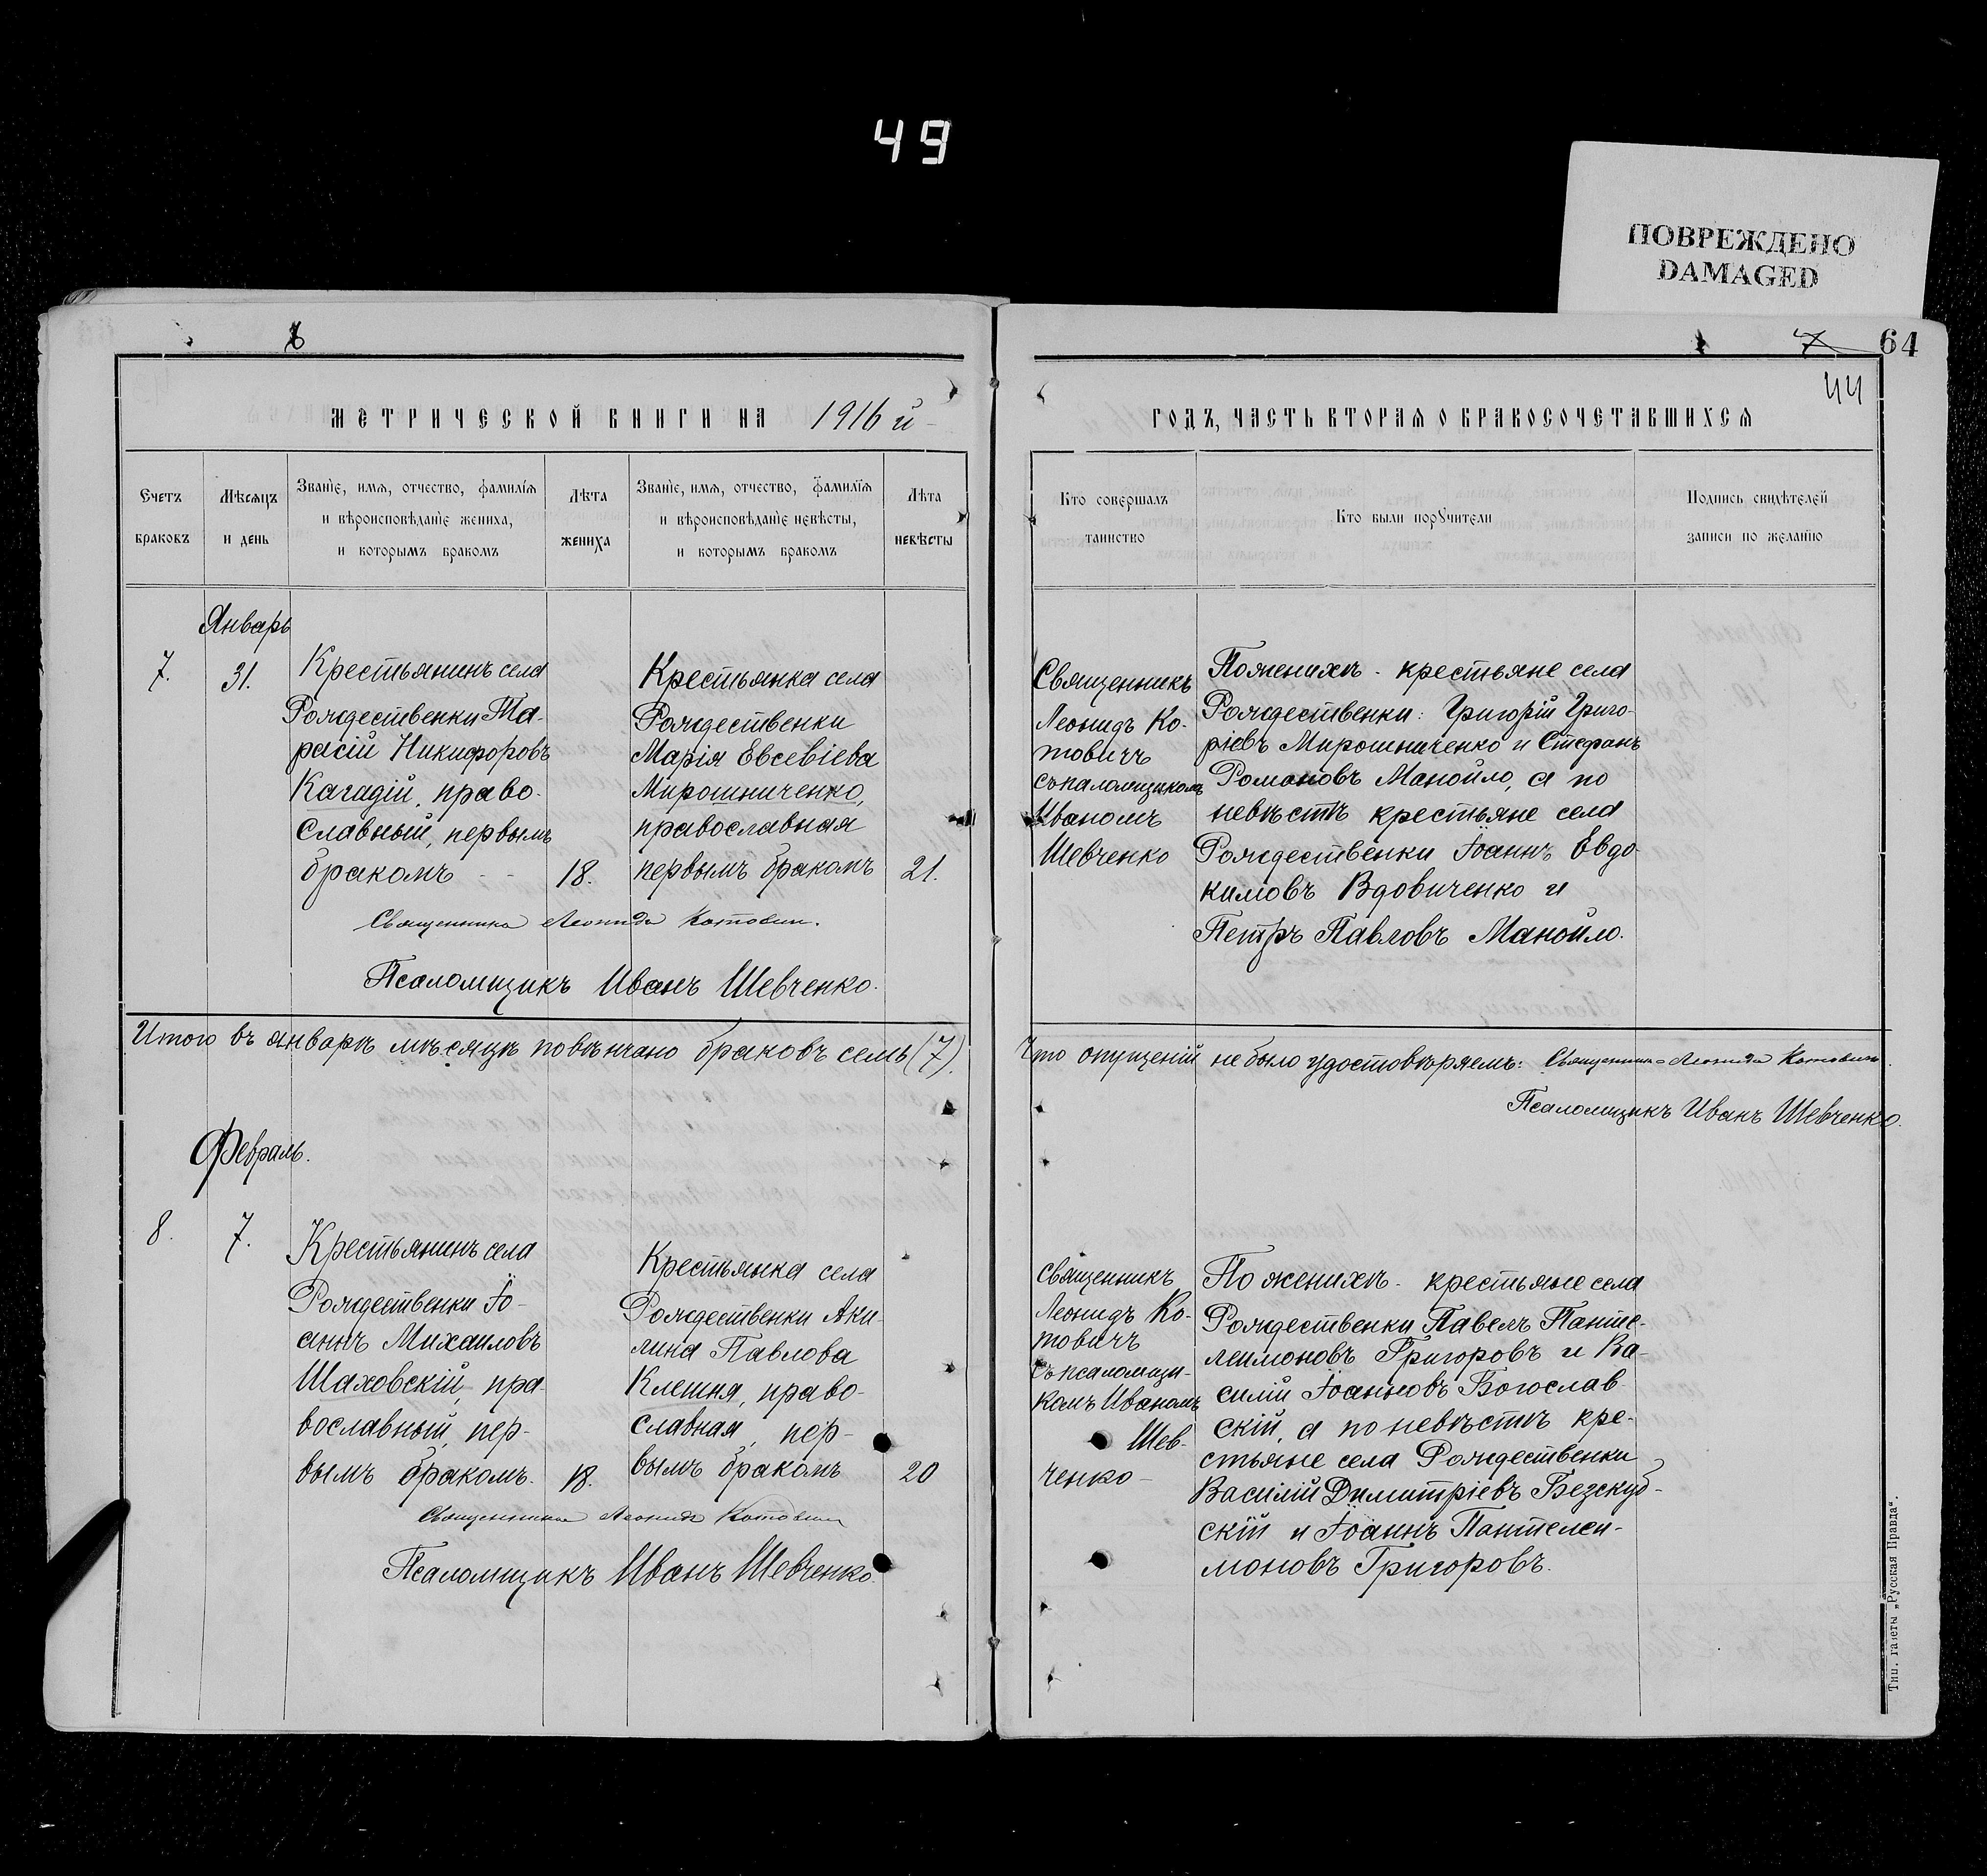 49
ПОВРЕЖДЕНО
DAMAGED
7
64
44
МЕТРИЧЕСКОЙ КНИГИ НА 1916 й
ГОДЪ, ЧАСТЬ ВТОРАЯ О БРАКОСОЧЕТАВШИХСЯ
Счетъ
браковъ
Мѣсяцъ
и день
Званіе, имя, отчество, фамилія
и вѣроисповѣданіе жениха,
и которымъ бракомъ
Лѣта
жениха
Званіе, имя, отчество, фамилія
и вѣроисповѣданіе невѣсты,
и которымъ бракомъ
Лѣта
невѣсты
Кто совершалъ
таинство
Кто были поручители
Подпись свидѣтелей
записи по желанію
Январь
7.
31.
Крестьянинъ села
Рождественки Та-
расій Никифоровъ
Кагадій, право-
славный, первымъ
бракомъ
18.
Крестьянка села
Рождественки
Марія Евсевіева
Мирошниченко,
православная
первымъ бракомъ
21.
Священникъ
Леонидъ Ко-
товичъ
съ псаломщикомъ
Иваномъ
Шевченко
По женихѣ - крестьяне села
Рождественки: Григорій Григо-
ріевъ Мирошниченко и Стефанъ
Романовъ Манойло, а по
невѣстѣ крестьяне села
Рождественки Іоаннъ Евдо-
кимовъ Вдовиченко и
Петръ Павловъ Манойло.
Священникъ Леонидъ Котовичъ.
Псаломщикъ Иванъ Шевченко.
Итого въ январѣ мѣсяцѣ повѣнчано браковъ семь (7).
Что опущеній не было удостовѣряемъ: Священникъ Леонидъ Котовичъ.
Псаломщикъ Иванъ Шевченко.
Февраль.
8.
7.
Крестьянинъ села
Рождественки Іо-
аннъ Михаиловъ
Шаховскій, пра-
вославный, пер-
вымъ бракомъ.
18.
Крестьянка села
Рождественки Аки-
лина Павлова
Клешня, право-
славная, пер-
вымъ бракомъ
20
Священникъ
Леонидъ Ко-
товичъ
съ псаломщи-
комъ Иваномъ
Шев-
ченко-
По женихѣ - крестьяне села
Рождественки Павелъ Панте-
леимоновъ Григоровъ и Ва-
силій Іоанновъ Богослав-
скій, а по невѣстѣ кре-
стьяне села Рождественки
Василій Димитріевъ Безскуб-
скій и Іоаннъ Пантелеи-
моновъ Григоровъ.
Священникъ Леонидъ Котовичъ
Псаломщикъ Иванъ Шевченко.
Тип. газеты „Русская Правда“.